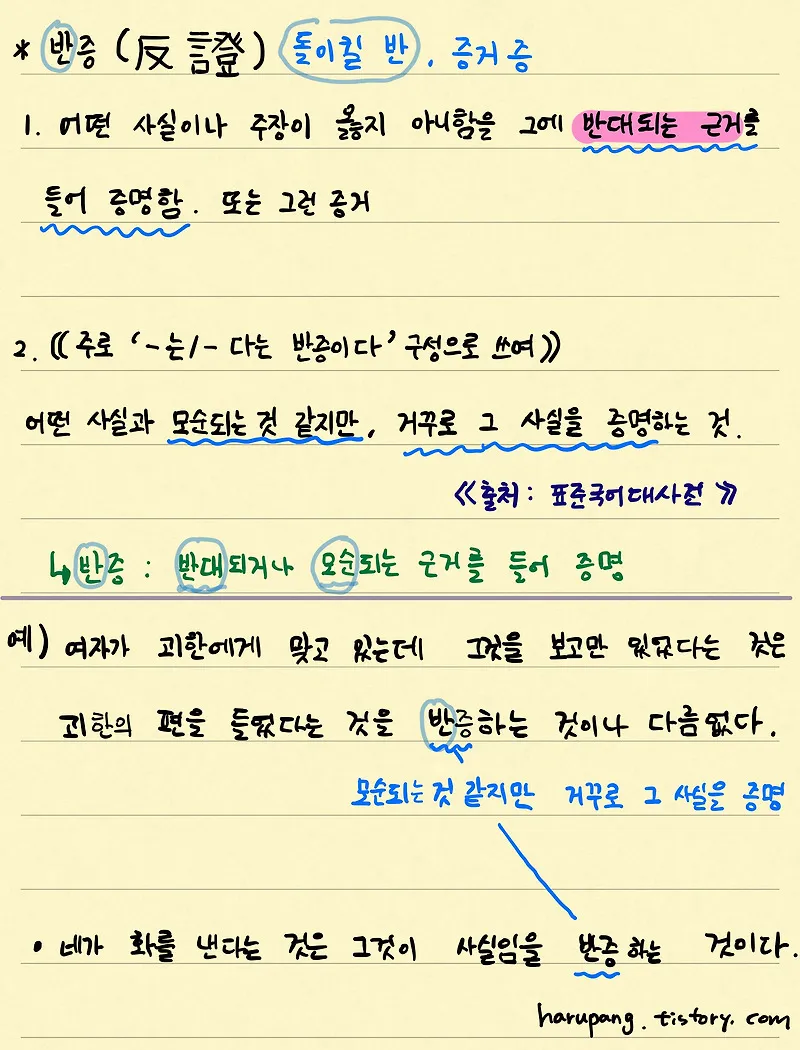 * 반증 (反證) 돌이킬 반, 증거 증
1. 어떤 사실이나 주장이 옳지 아니함을 그에 반대되는 근거를
들어 증명함. 또는 그런 증거
2. 《주로 ‘-는/-다는 반증이다’ 구성으로 쓰여》
어떤 사실과 모순되는 것 같지만, 거꾸로 그 사실을 증명하는 것.
《출처: 표준국어대사전》
↳반증 : 반대되거나 모순되는 근거를 들어 증명
예) 여자가 괴한에게 맞고 있는데 그것을 보고만 있었다는 것은
괴한의 편을 들었다는 것을 반증하는 것이나 다름없다.
모순되는 것 같지만 거꾸로 그 사실을 증명
• 네가 화를 낸다는 것은 그것이 사실임을 반증하는 것이다.
harupang.tistory.com